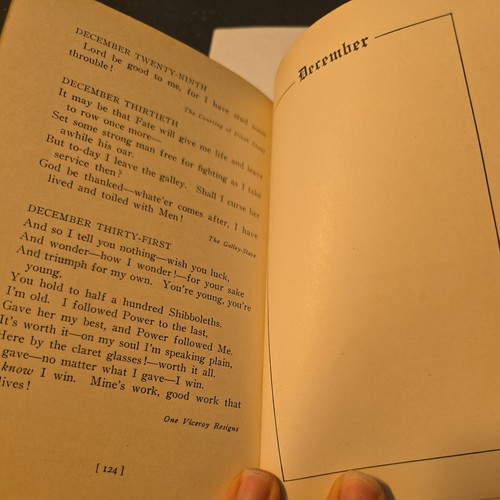 DECEMBER TWENTY-NINTH
Lord be good to me, for I have
throuble!
The Courting of Dinah Shadd
DECEMBER THIRTIETH
It may be that Fate will give me life and leave
to row once more—
Set some strong man free for fighting as I take
awhile his oar.
But to-day I leave the galley. Shall I curse her
service then?
God be thanked—whate'er comes after, I have
lived and toiled with Men!
The Galley-Slave
DECEMBER THIRTY-FIRST
And so I tell you nothing—wish you luck,
And wonder—how I wonder!—for your sake
And triumph for my own. You're young, you're
young,
You hold to half a hundred Shibboleths.
I'm old. I followed Power to the last,
Gave her my best, and Power followed Me.
It's worth it—on my soul I'm speaking plain,
Here by the claret glasses!—worth it all.
gave—no matter what I gave—I win.
know I win. Mine's work, good work that
lives!
One Viceroy Resigns
[ 124 ]
December